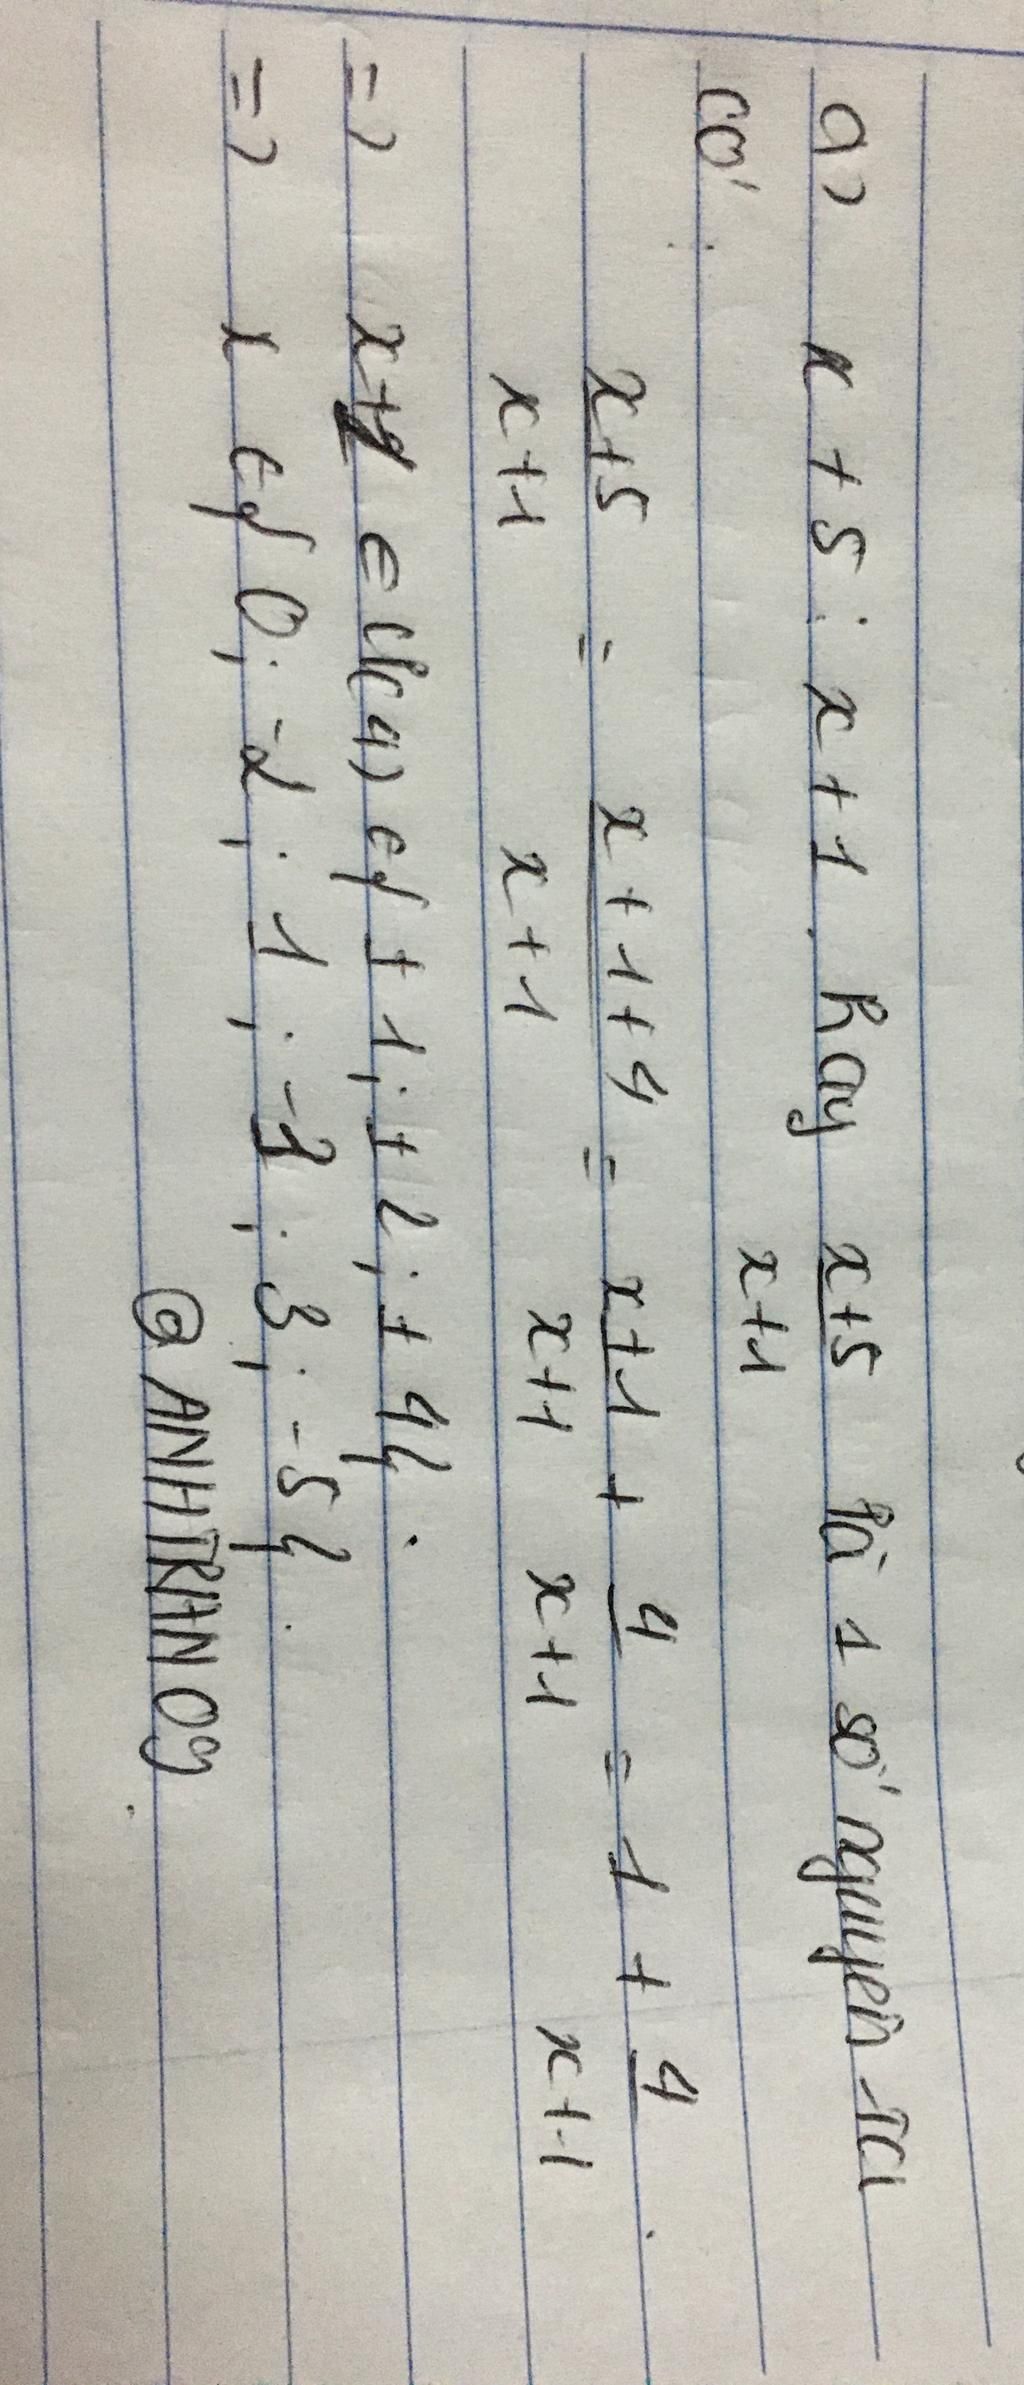 a) x + 5 : x + 1. hay x+5/x+1 là 1 số nguyên. Ta
có:
x+5/x+1 = x+1+4/x+1 = x+1/x+1 + 4/x+1 = 1 + 4/x+1.
=> x+1 ∈ Ư(4) ∈ { ±1; ±2; ±4}.
=> x ∈ { 0; -2; 1; -3; 3; -5 }.
@ ANHTRAN 09.